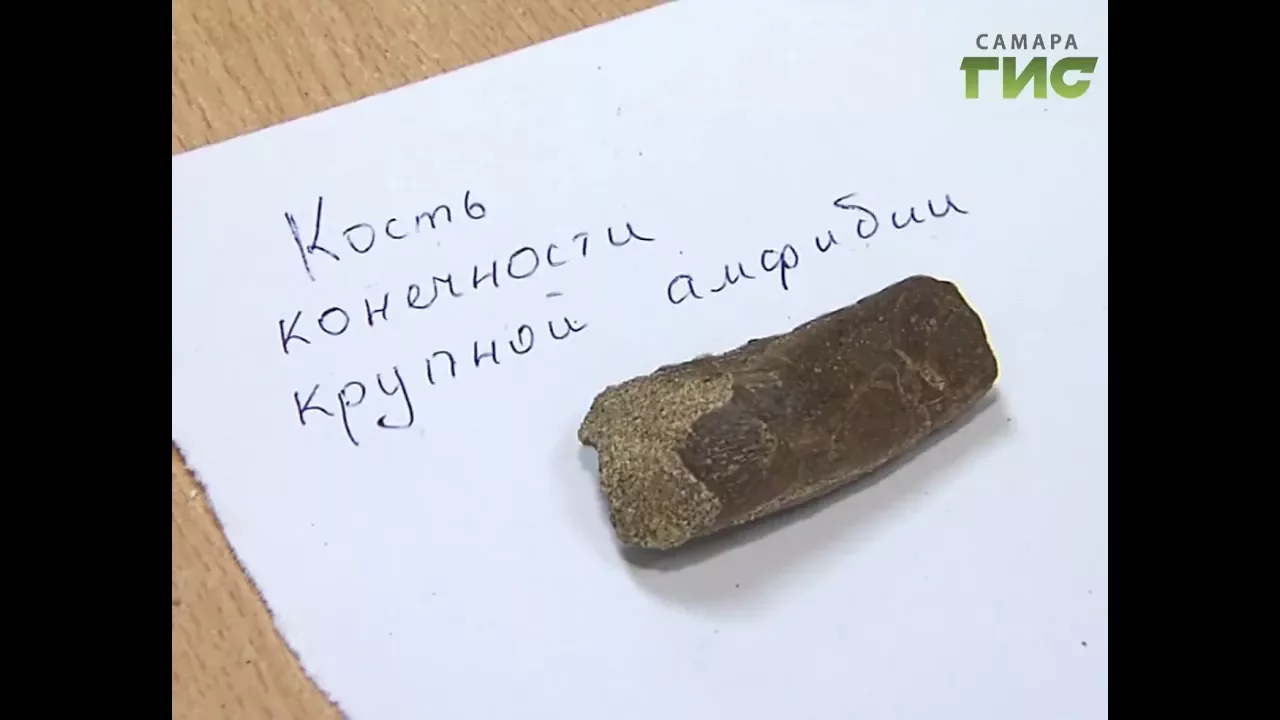 САМАРА
ГИС
Кость
конечности
крупной амфибии